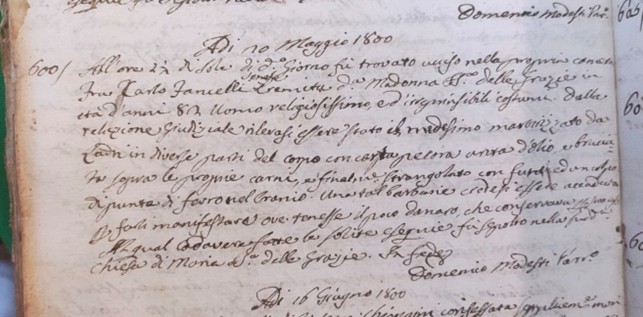 Domenico Modesti Parr.
Adi 10 Maggio 1800
600/ All'ore 22 di Sole di dº Giorno fù trovato ucciso nella propria camera
Fra Carlo Eremita dª Madonna SSma delle Grazie in
età d'anni 82 Uomo religiosissimo, ed irreprensibili costumi. Dalla
relazione Giudiziale rilevasi essere stato il medesimo martirizzato da
Ladri in diverse parti del corpo con carta pecora unta d'olio, e brucia
ta sopra le proprie carni, e finalmte strangolato con funi, ed un colpo
di punta di ferro nel Cranio. Una tal barbarie credesi essere accaduta
p farli manifestare ove tenesse il poco danaro, che conservava
Al qual Cadavere fatte le solite esequie fù sepolto nella sudª
Chiesa di Maria Sª delle Grazie. In fede
Domenico Modesti Parrº
Adi 16 Giugno 1800
confessata